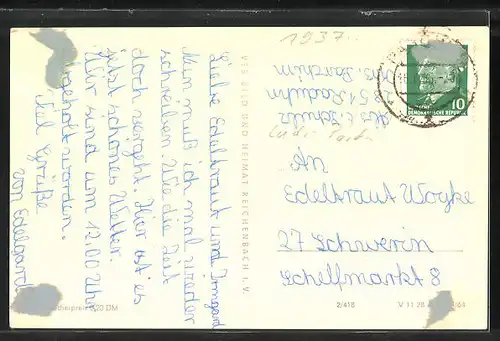 1937..
Liebe Edeltraut und Irmgard
Nun muß ich mal wieder
schreiben. Wie die Zeit
doch vergeht. Hier ist es
jetzt schönes Wetter.
Wir sind um 12.00 Uhr
geholt worden.
Viel Grüße
von Edelgard
VEB BILD UND HEIMAT REICHENBACH I. V.
Abs. Schulz
Raduhn
Parchim
DEMOKRATISCHE REPUBLIK
10
An
Edeltraut Woyke
27 Schwerin
Schelfmarkt 8
0,20 DM
2/418
V 11 28